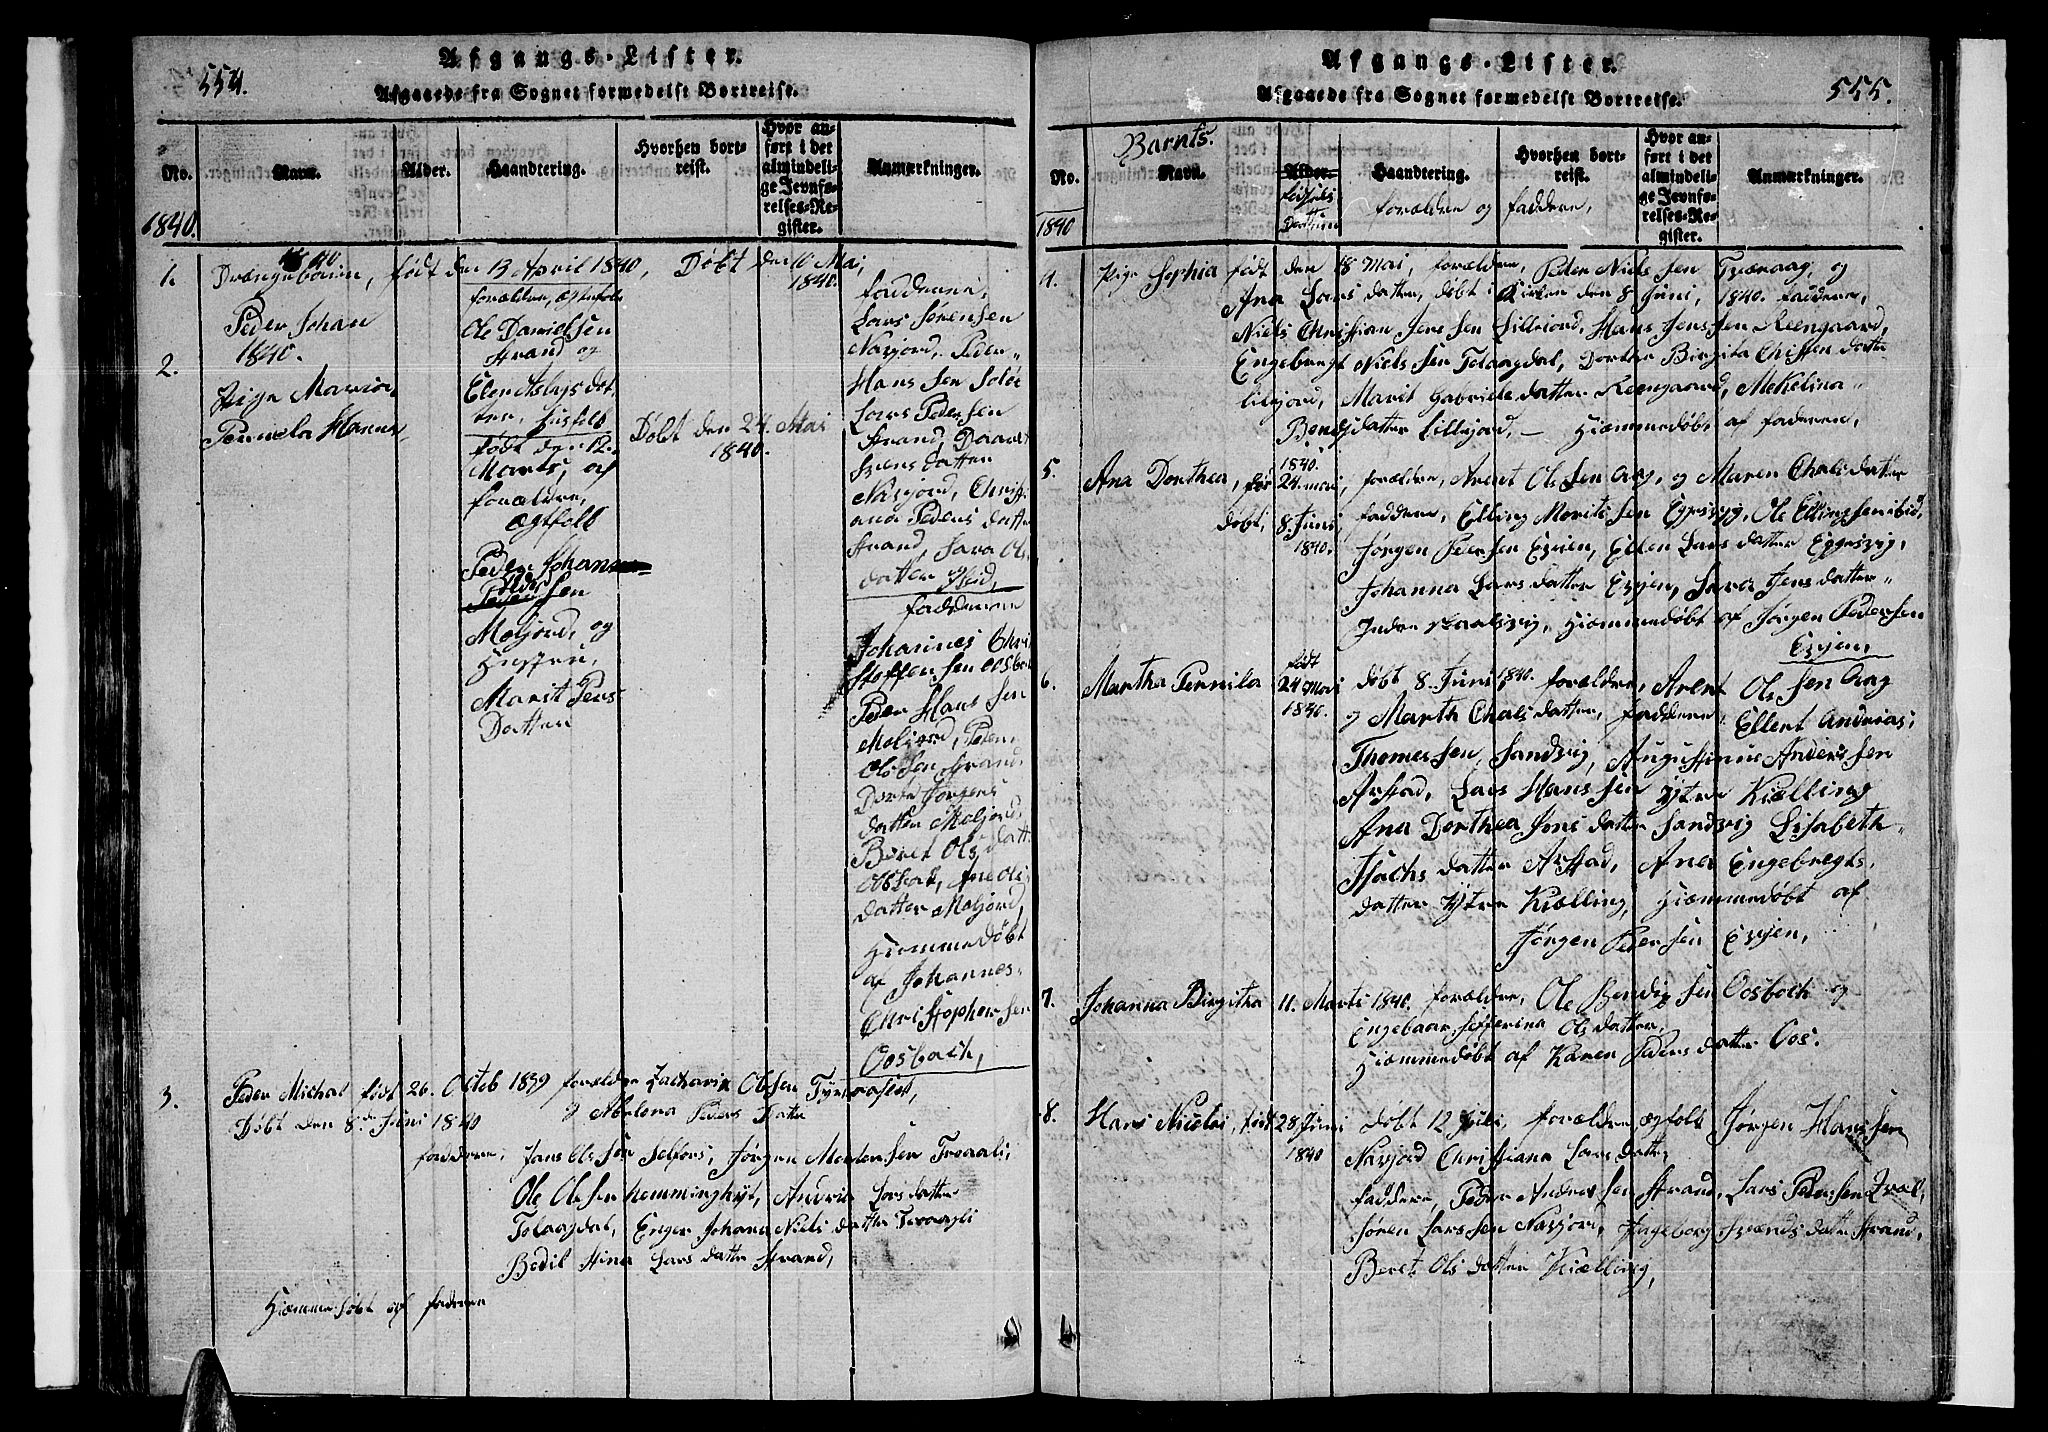 554.
Afgangs-Lister.
Afgaaede fra Sognet formedelst Bortreise.
No.
Navn.
Alder.
Haandtering.
Hvorhen bort-
reist.
Hvor an-
ført i det
almindeli-
ge Jevnfø-
relses-Re-
gister.
Anmærkninger.
1840.
1.
Drængebarn, født den 13 April 1840, Døbt den 10 Mai,
1840.
Peder Johan
1840.
forældre, ægtefolk
Ole Danielsen
Strand og
Elen Aslags dat
ter, Husfolk
fadderne,
Lars Sørensen
Nasjord, Peder
Hans Sen Soløe
Lars Peder Sen
Strand,
Svens datter
Nasjord, Christi
ana Peders datter
Strand, Sara Ols
datter Ibid,
2.
Pige Maria
Pernela Hanna
født den 12.
Marts, af
forældre,
Ægtfolk
Peder
Peder Sen
Moljord, og
Hustru,
Marit Peders
Datter
Døbt den 24. Mai
1840.
fadderne
Johannes Chri
stoffen Sen Oosbak
Peder Hans Sen
Moljord, Peder
Ols Sen Strand
Dorte Jørgens
datter Moljord,
Beret Ols datt
Oosbak, Ane Ols
datter Moljord,
Hiemmedøbt
af Johannes
Christopher Sen
Oosbach,
3.
Peder Michal født 26. Octob 1839 forældre Zacharis Olsen
Døbt den 8de Juni 1840 og Abelona Peders Datter
fadderne, Jens Ols Søn Selfors, Jørgen Morten Sen Tveraali,
Ole Olsen Hemminghyt, Andria Lars datter
Tolaagdal, Enger Johana Niels datter Tvraagli
Bodil Stina Lars datter Strand,
Hiemmedøbt af faderen
555.
Afgangs-Lister.
Afgaaede fra Sognet formedelst Bortreise.
Barnets.
No.
Navn.
Alder.
fødsels
Dattum
Haandtering.
Hvorhen bort-
reist.
forældre og faddere,
Hvor an-
ført i det
almindeli-
ge Jevnfø-
relses-Re-
gister.
Anmærkninger.
1840
4.
Pige Sophia født den 18 Mai, forældre, Peder Niels Sen Tværaag, og
Ana Lars datter, døbt i Kirken den 8 Juni, 1840. faddere,
Niels Christian Jens Sen Lillejord, Hans Jens Sen Reengaard,
Engebregt Niels Sen Tolaagdal, Dortea Birgita Chisten datter
Lilejord, Marit Gabriels datter Reengaard, Mekelina
Bendi datter Lillejord, — Hiemmedøbt af faderen,
5.
Ana Dorthea, fød 24. mai 1840. forældre, Arent Ole Sen Aag, og Maren Chals datter
døbt, 8. Juni 1840. faddere, Elling Morits Sen Egesvig, Ole Ellingsen ibid,
Jørgen Peder Sen Evjen, Ellen Lars datter Eggesvig,
Johanna Lars datter Evjen, Sara Jens datter
Indre Kaalsvig, Hiemmedøbt af Jørgen Peder Sen
Evjen,
6.
Martha Pernila født 24 Mai 1840. døbt 8. Juni 1840. forældre, Arent Ole Sen Aag
og Marth Chals datter, faddere, Ellert Andreas
Thomes Sen, Sandvig, Augustinus Anders Sen
Arstad, Lars Hans Sen Ytre Kiælling
Ana Dorthea Jons datter Sandvig Lisabeth
Isachs datter Arstad, Ane Engebregts
datter Ytre Kiælling, Hiemmedøbt af
Jørgen Peder Sen Evjen,
7.
Johanna Birgitha 11. Marts 1840. forældre, Ole Bendig Sen Oosbach og
Engebaar Sefferina Ols datter,
Hiemmedøbt af Karen Peders datter Oos.
8.
Hans Nicolai, født 28. Juni 1840 døbt 12 Juli, forældre ægfolk Jørgen Hans Sen
Nasjord Christiana Lars datter
faddere, Peder Andres Sen Strand, Lars Peder Sen
Søren Lars Sen Nasjord, Ingeborg Svends datter Strand,
Beret Ols datter Kiælling,